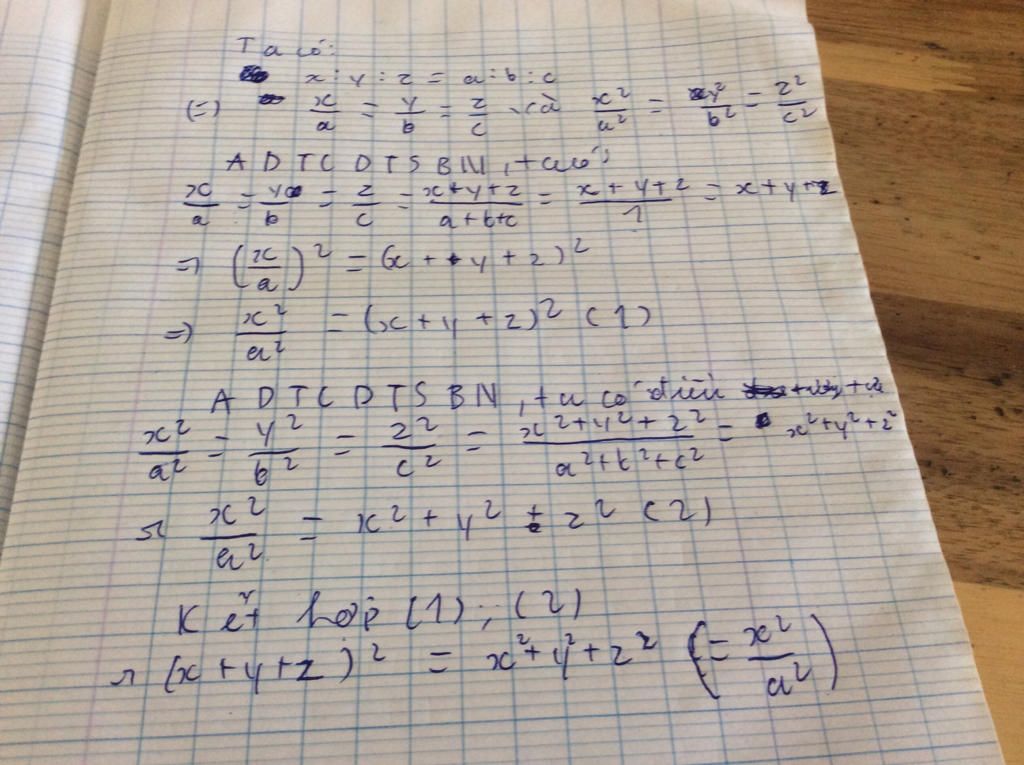 Ta có:
x : y : z = a : b : c
(=) x/a = y/b = z/c và x²/a² = y²/b² = z²/c²
A D T C D T S B N, ta có
x/a = y/b = z/c = x+y+z/a+b+c = x+y+z/1 = x+y+z
=> (x/a)² = (x + y + z)²
=> x²/a² = (x+y+z)² (1)
A D T C D T S B N, ta có
x²/a² = y²/b² = z²/c² = x²+y²+z²/a²+b²+c² = x²+y²+z²
=> x²/a² = x² + y² + z² (2)
Kết hợp (1), (2)
=> (x+y+z)² = x²+y²+z² (= x²/a²)